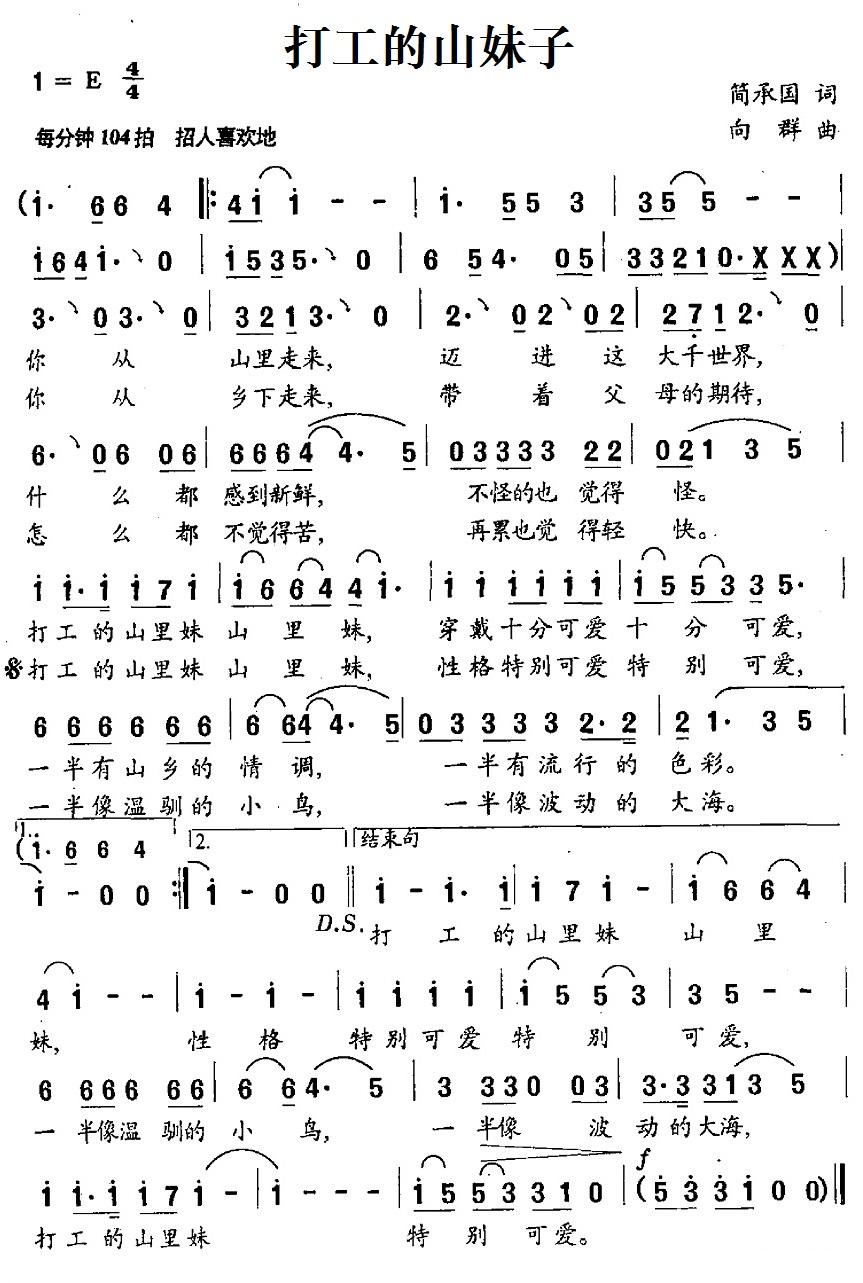 打工的山妹子
1 = E 4/4
简承国 词
每分钟104拍 招人喜欢地
向 群 曲
(i· 6 6 4 ‖: 4 i i - - | i· 5 5 3 | 3 5 5 - -
i 6 4 i· 0 | i 5 3 5· 0 | 6 5 4· 0 5 | 3 3 2 1 0· X X X)
3· 0 3· 0 | 3 2 1 3· 0 | 2· 0 2 0 2 | 2 7 1 2· 0
你 从 山里走来, 迈 进 这 大千世界,
你 从 乡下走来, 带 着 父 母的期待,
6· 0 6 0 6 | 6 6 6 4 4· 5 | 0 3 3 3 3 2 2 | 0 2 1 3 5
什 么 都 感到新鲜, 不怪的也 觉得 怪。
怎 么 都 不觉得苦, 再累也觉 得轻 快。
i i· i i 7 i | i 6 6 4 4 i· | i i i i i i | i 5 5 3 3 5·
打工的山里妹 山 里 妹, 穿戴十分可爱 十 分 可爱,
打工的山里妹 山 里 妹, 性格特别可爱 特 别 可爱,
6 6 6 6 6 6 | 6 6 4 4· 5 | 0 3 3 3 3 2· 2 | 2 1· 3 5
一半有山乡的 情 调, 一半有流行的 色彩。
一半像温驯的 小 鸟, 一半像波动的 大海。
1.
(i· 6 6 4
2.
结束句
i - 0 0 :‖ i - 0 0 ‖ i - i· i | i 7 i - | i 6 6 4
D.S.
打 工 的山里妹 山 里
4 i - - | i - i - | i i i i | i 5 5 3 | 3 5 - -
妹, 性 格 特别可爱 特 别 可爱,
6 6 6 6 6 6 | 6 6 4· 5 | 3 3 3 0 0 3 | 3· 3 3 3 1 3 5
一 半像温 驯的 小 鸟, 一 半像 波 动的大海,
f
i i· i i 7 i - | i - - - | i 5 5 3 3 3 1 0 | (5 3 3 i 0 0)‖
打工的山里妹 特 别 可爱。